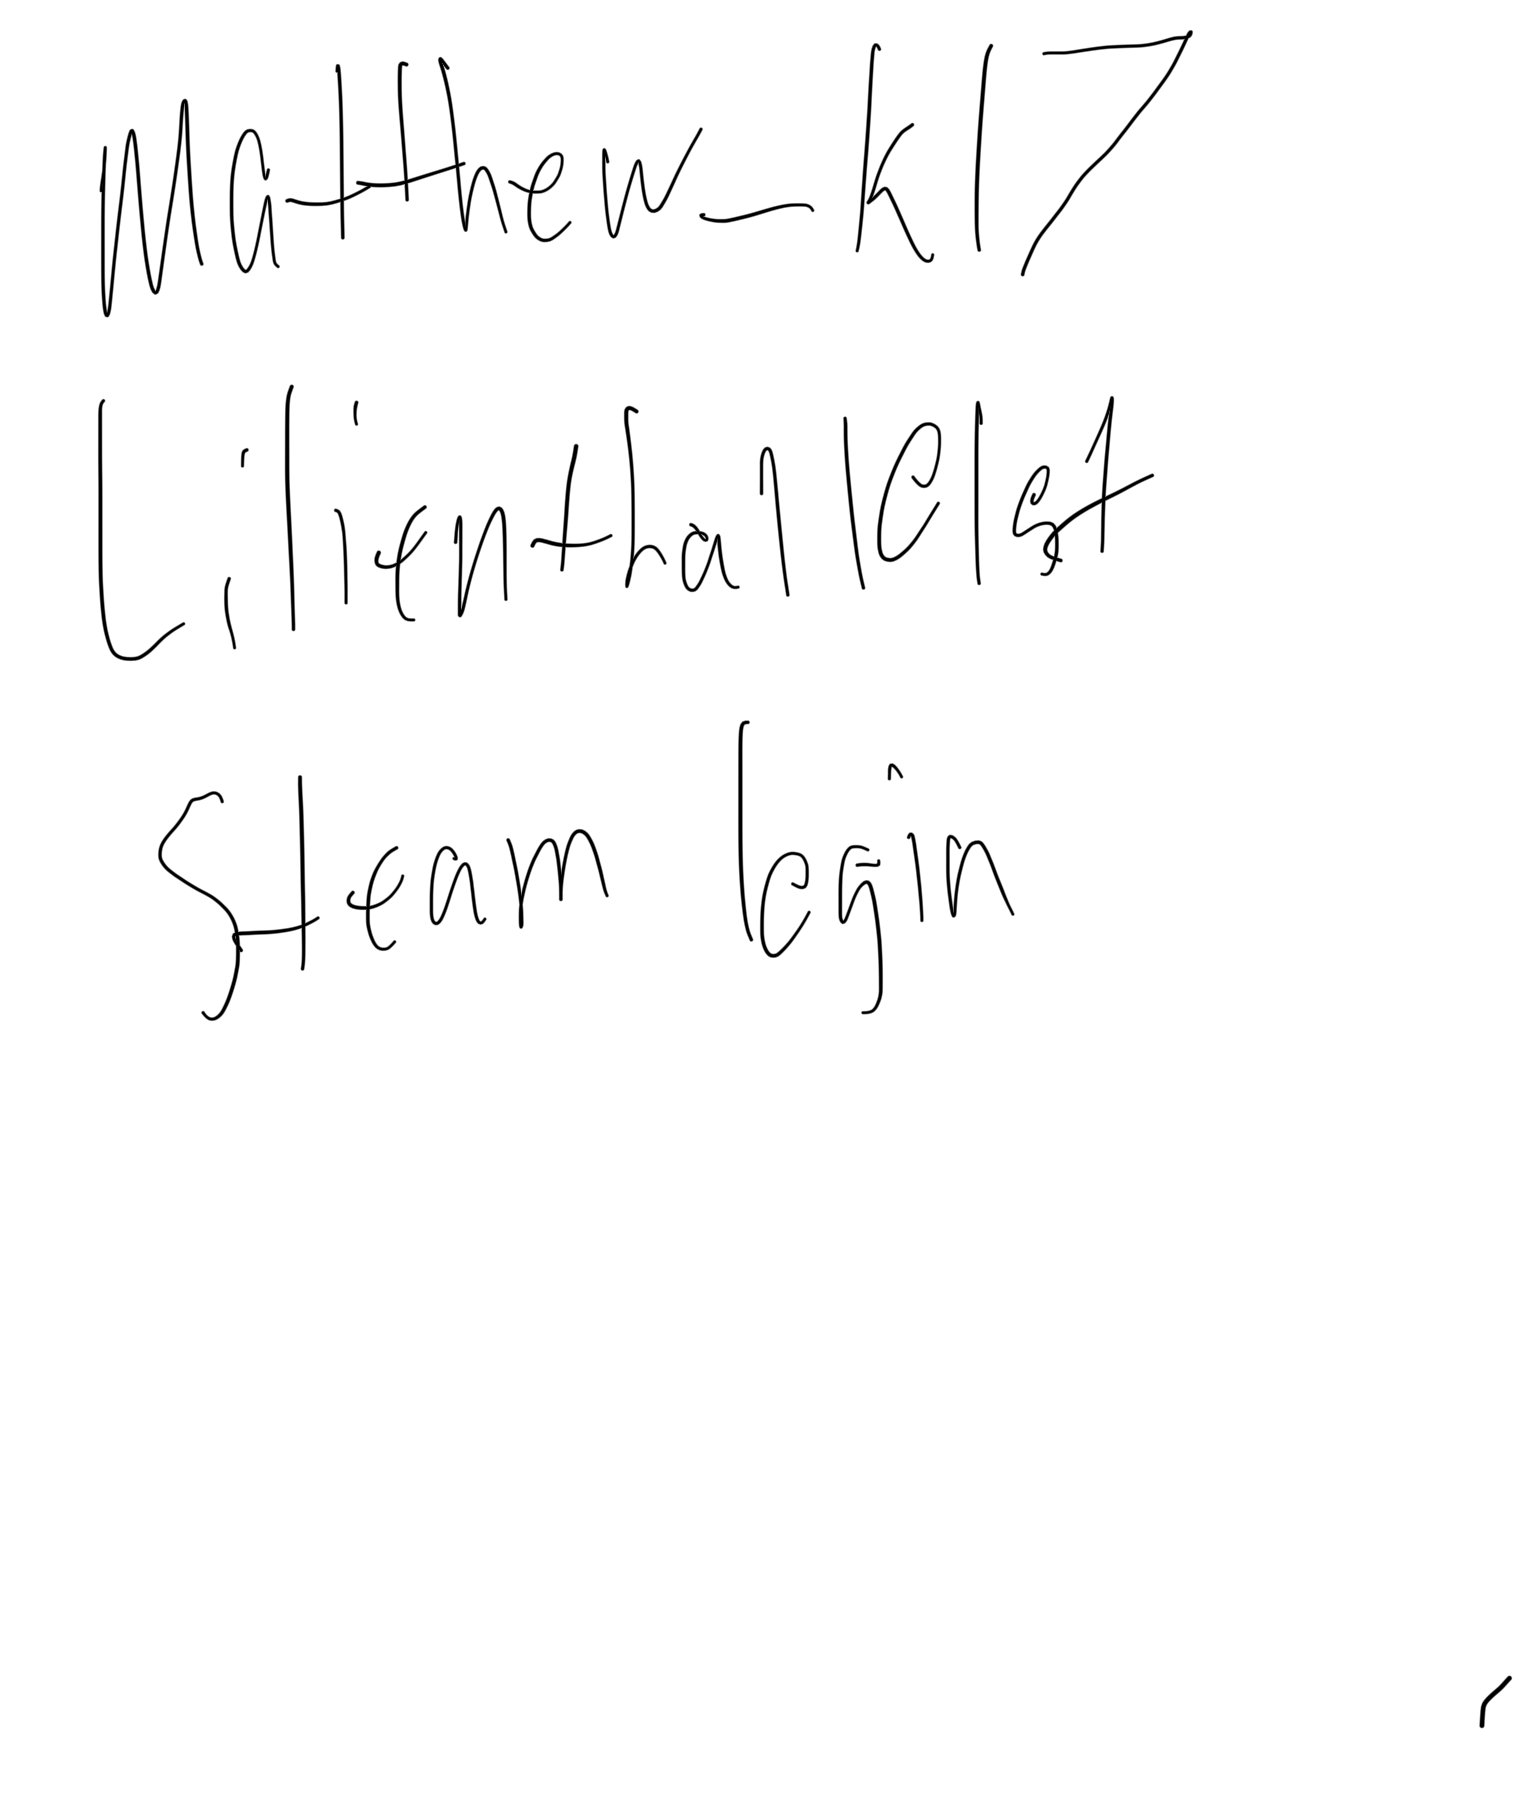 Matthew_k17
Lilienthal1elst
Steam legin